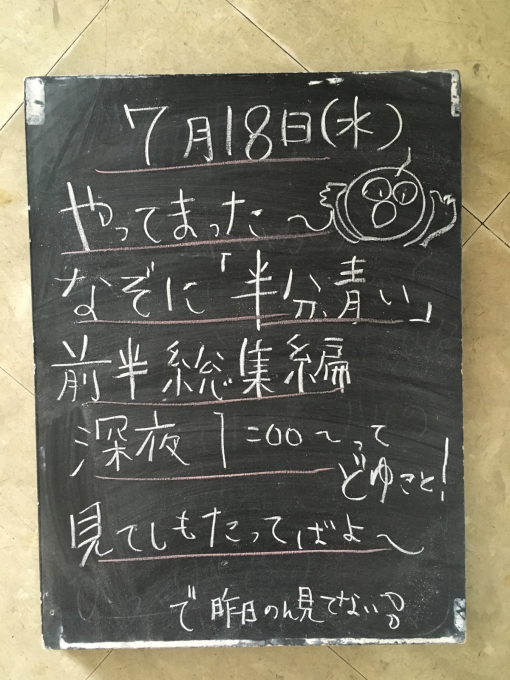 7月18日(水)
やってまった〜
なぞに「半分、青い」
前半総集編
深夜1:00〜って
どゆこと!
見てしもたってばよ〜
で昨日のん見てない